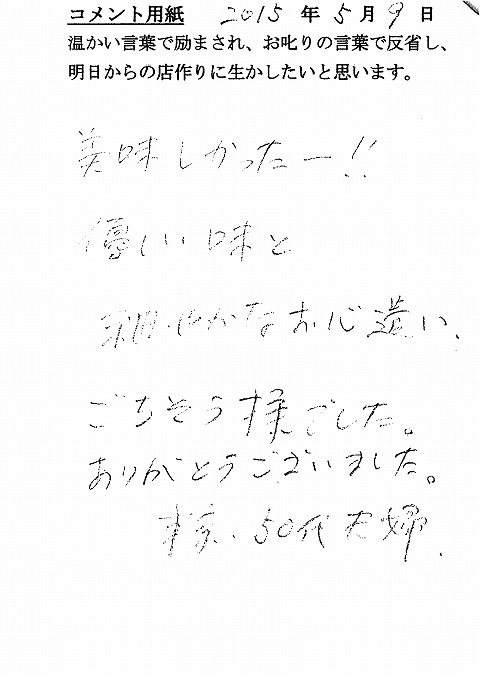 コメント用紙 2015年5月9日
温かい言葉で励まされ、お叱りの言葉で反省し、
明日からの店作りに生かしたいと思います。
美味しかったー!!
優しい味と
細やかなお心遣い、
ごちそう様でした。
ありがとうございました。
東京、50代夫婦、